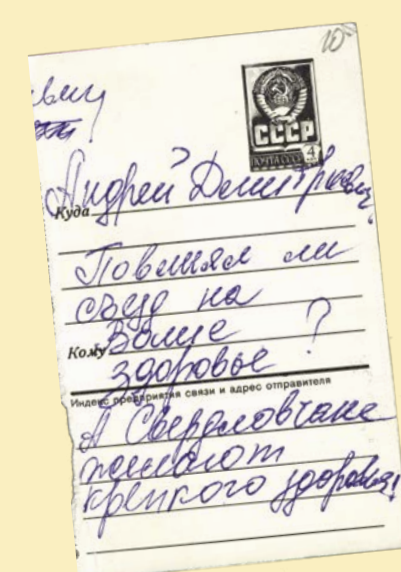 10
СССР
ПОЧТА СССР 4
Андрей Дмитриевич,
Куда
Повлиял ли
съезд на
Кому Ваше ?
здоровье
Индекс предприятия связи и адрес отправителя
А Свердловчане
желают
крепкого здоровья!